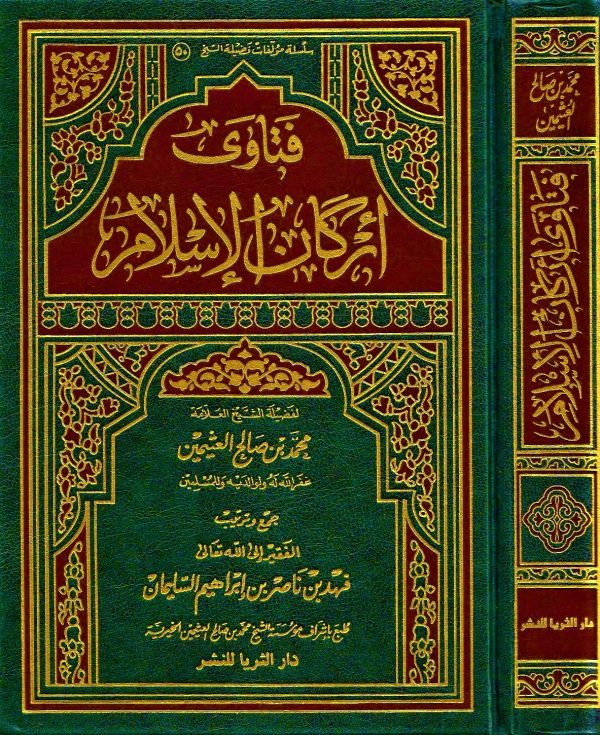 سلسلة مؤلفات فضيلة الشيخ (٥٠)
فتاوى
أركان الإسلام
لفضيلة الشيخ العلامة
محمد بن صالح العثيمين
غفر الله له ولوالديه وللمسلمين
جمع وترتيب
الفقير إلى الله تعالى
فهد بن ناصر بن إبراهيم السليمان
طبع بإشراف مؤسسة الشيخ محمد بن صالح العثيمين الخيرية
دار الثريا للنشر
محمد بن صالح
العثيمين
فتاوى أركان الإسلام
دار الثريا للنشر